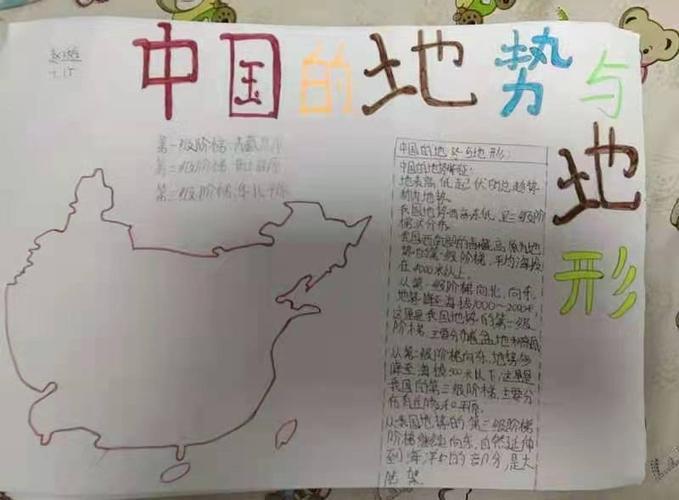 中国的地势与地形
第一级阶梯:青藏高原
第二级阶梯
第三级阶梯:华北平原
中国的地势与地形:
中国的地势特征:
地表高低起伏的总趋势
称为地势。
我国地势西高东低,呈三级阶
梯状分布。
我国西南部的青藏高原为地
势的第一级阶梯,平均海拔
在4000米以上。
从第一级阶梯向北、向东,
地势降至海拔1000~2000米,
这里是我国地势的第二级
阶梯,主要分布盆地和高原
从第二级阶梯向东,地势多
降至海拔500米以下,这里是
我国的第三级阶梯,主要分
布有丘陵和平原。
从我国地势的第三级阶梯
阶梯继续向东,自然延伸
到海洋中的部分,是大
陆架